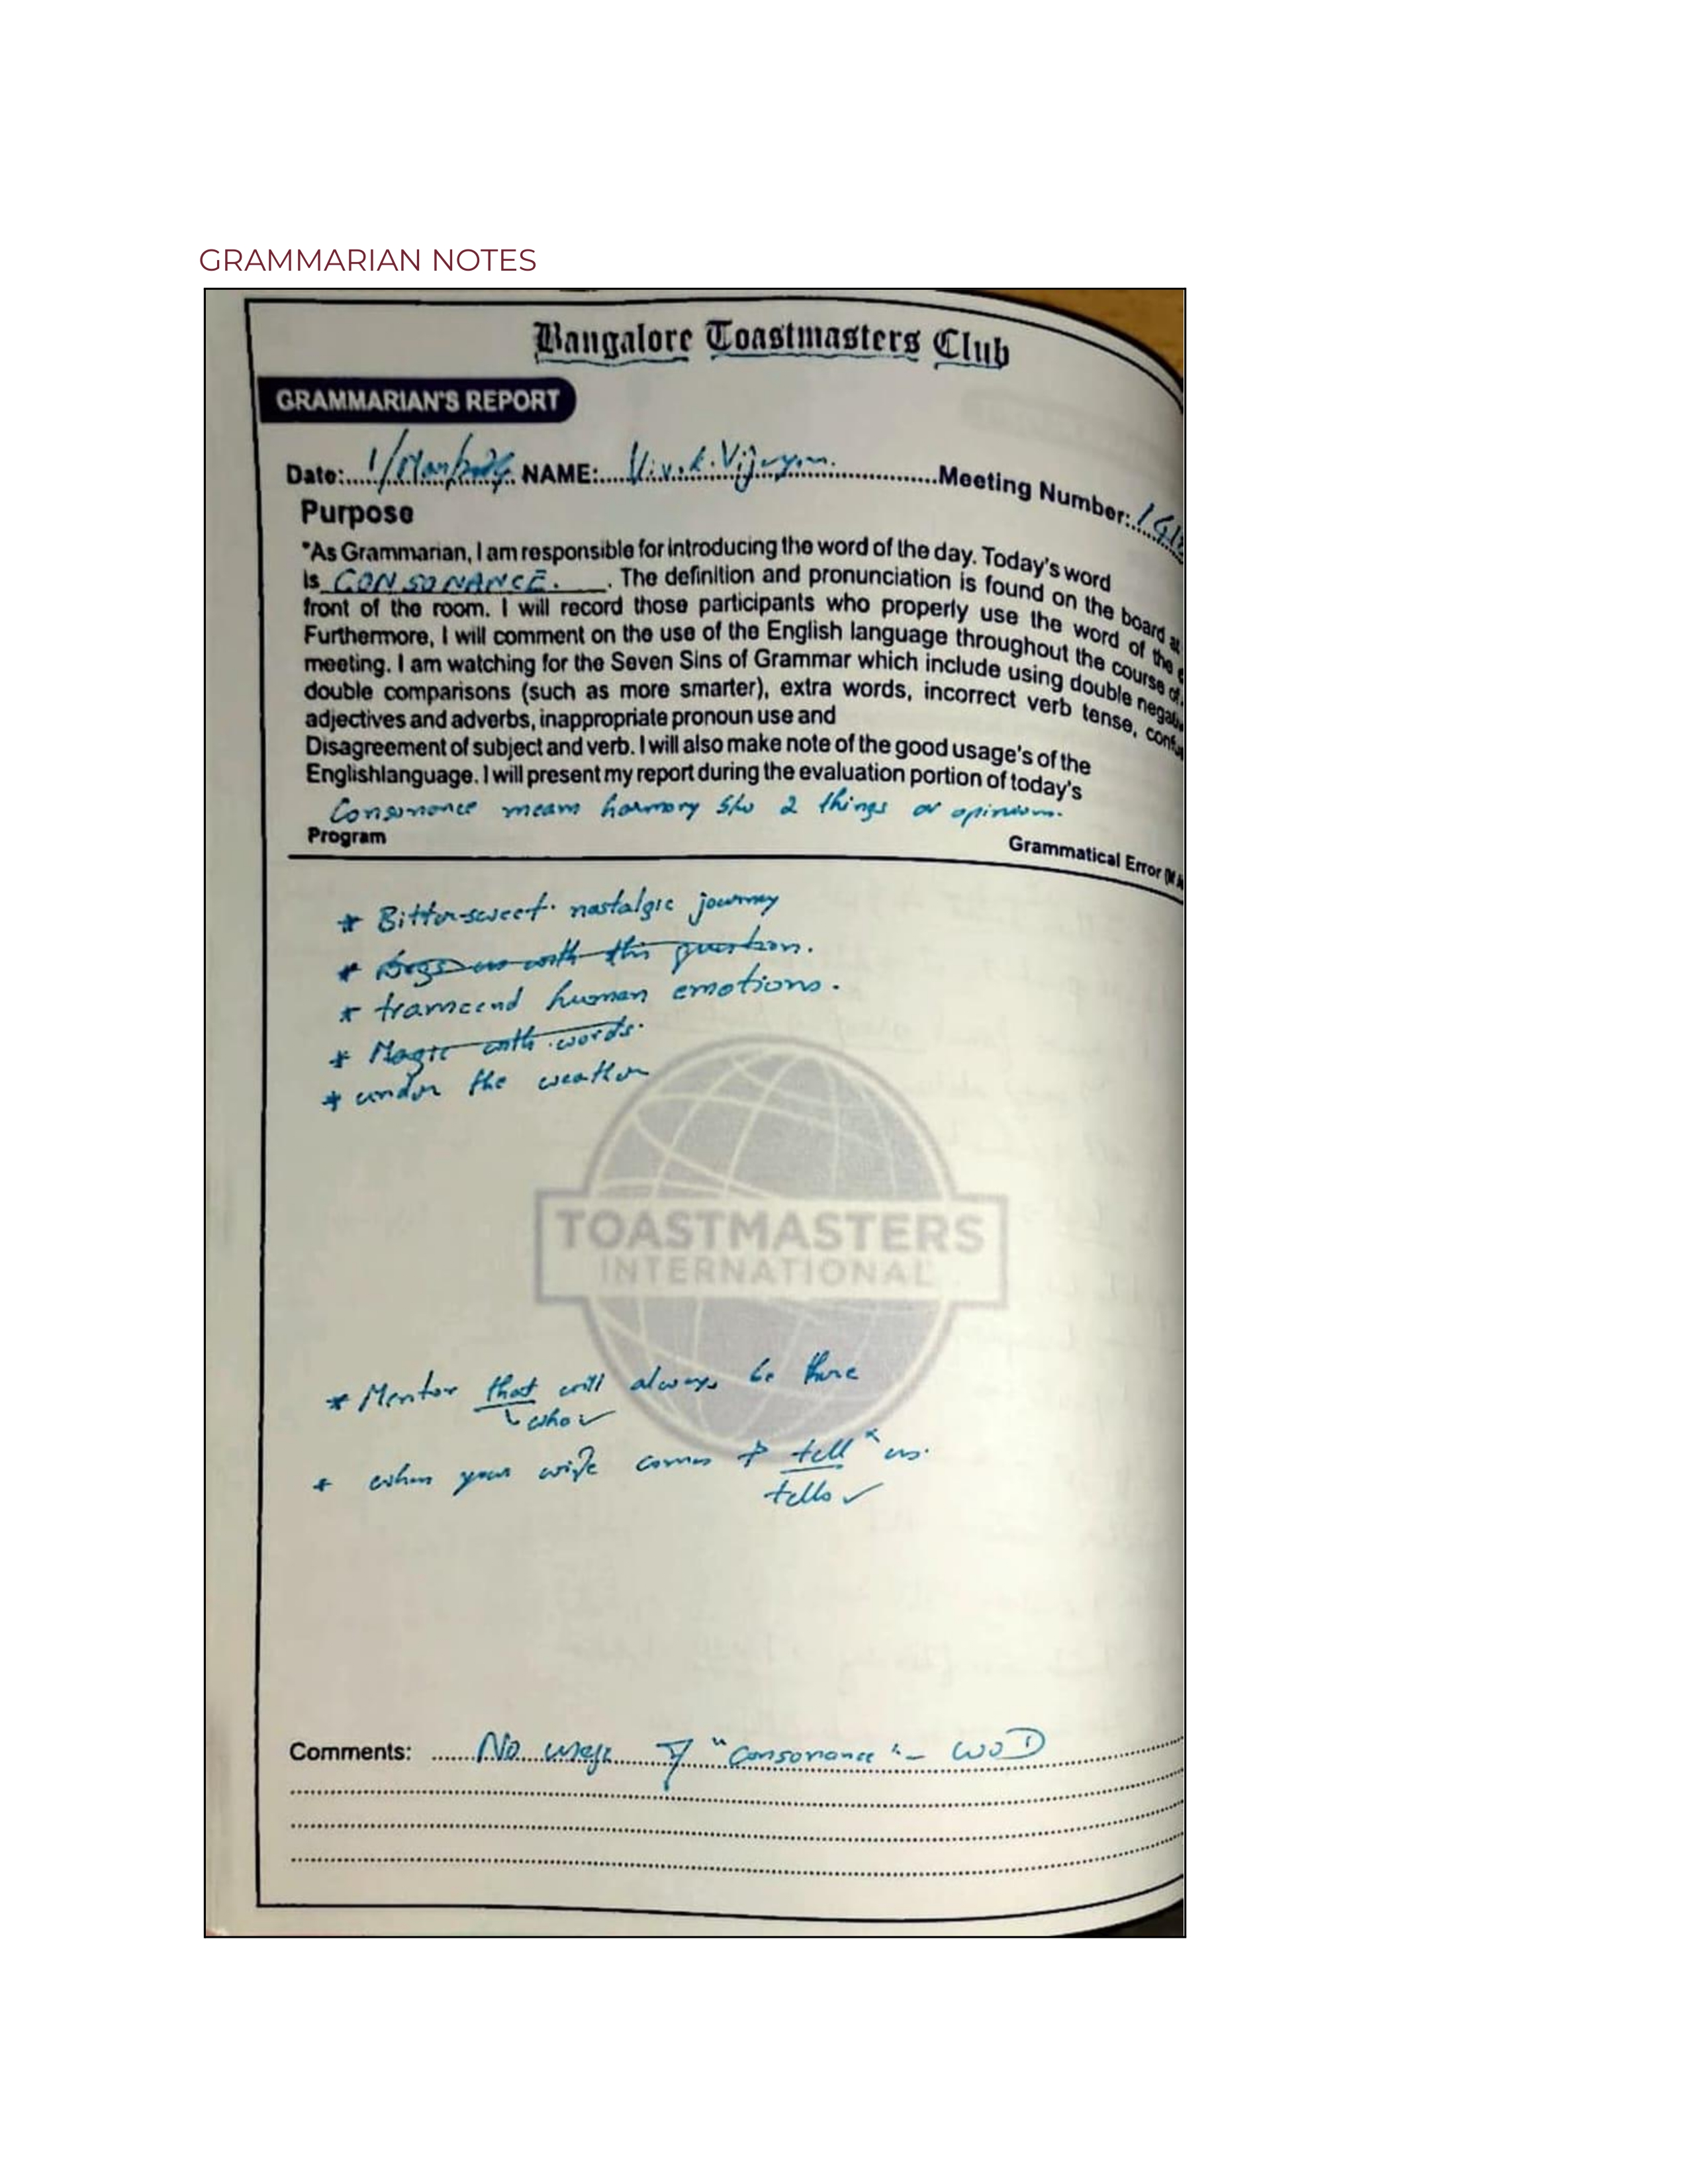 GRAMMARIAN NOTES
Bangalore Toastmasters Club
GRAMMARIAN'S REPORT
Date: 1/ NAME: Vivek Vijayan Meeting Number:
Purpose
"As Grammarian, I am responsible for introducing the word of the day. Today's word
is CONSONANCE. . The definition and pronunciation is found on the board at
front of the room. I will record those participants who properly use the word of the
Furthermore, I will comment on the use of the English language throughout the course of
meeting. I am watching for the Seven Sins of Grammar which include using double
double comparisons (such as more smarter), extra words, incorrect verb tense,
adjectives and adverbs, inappropriate pronoun use and
Disagreement of subject and verb. I will also make note of the good usage's of the
Englishlanguage. I will present my report during the evaluation portion of today's
Consonance means harmony b/w 2 things or opinions.
Program
Grammatical Error
* Bitter-sweet nostalgic journey
* us with this question.
* transcend human emotions.
* Magic with words.
* under the weather
TOASTMASTERS
INTERNATIONAL
* Mentor that will always be there
who ✓
* when your wife comes + tell x us.
tells ✓
Comments: No usage of "Consonance" - WOD